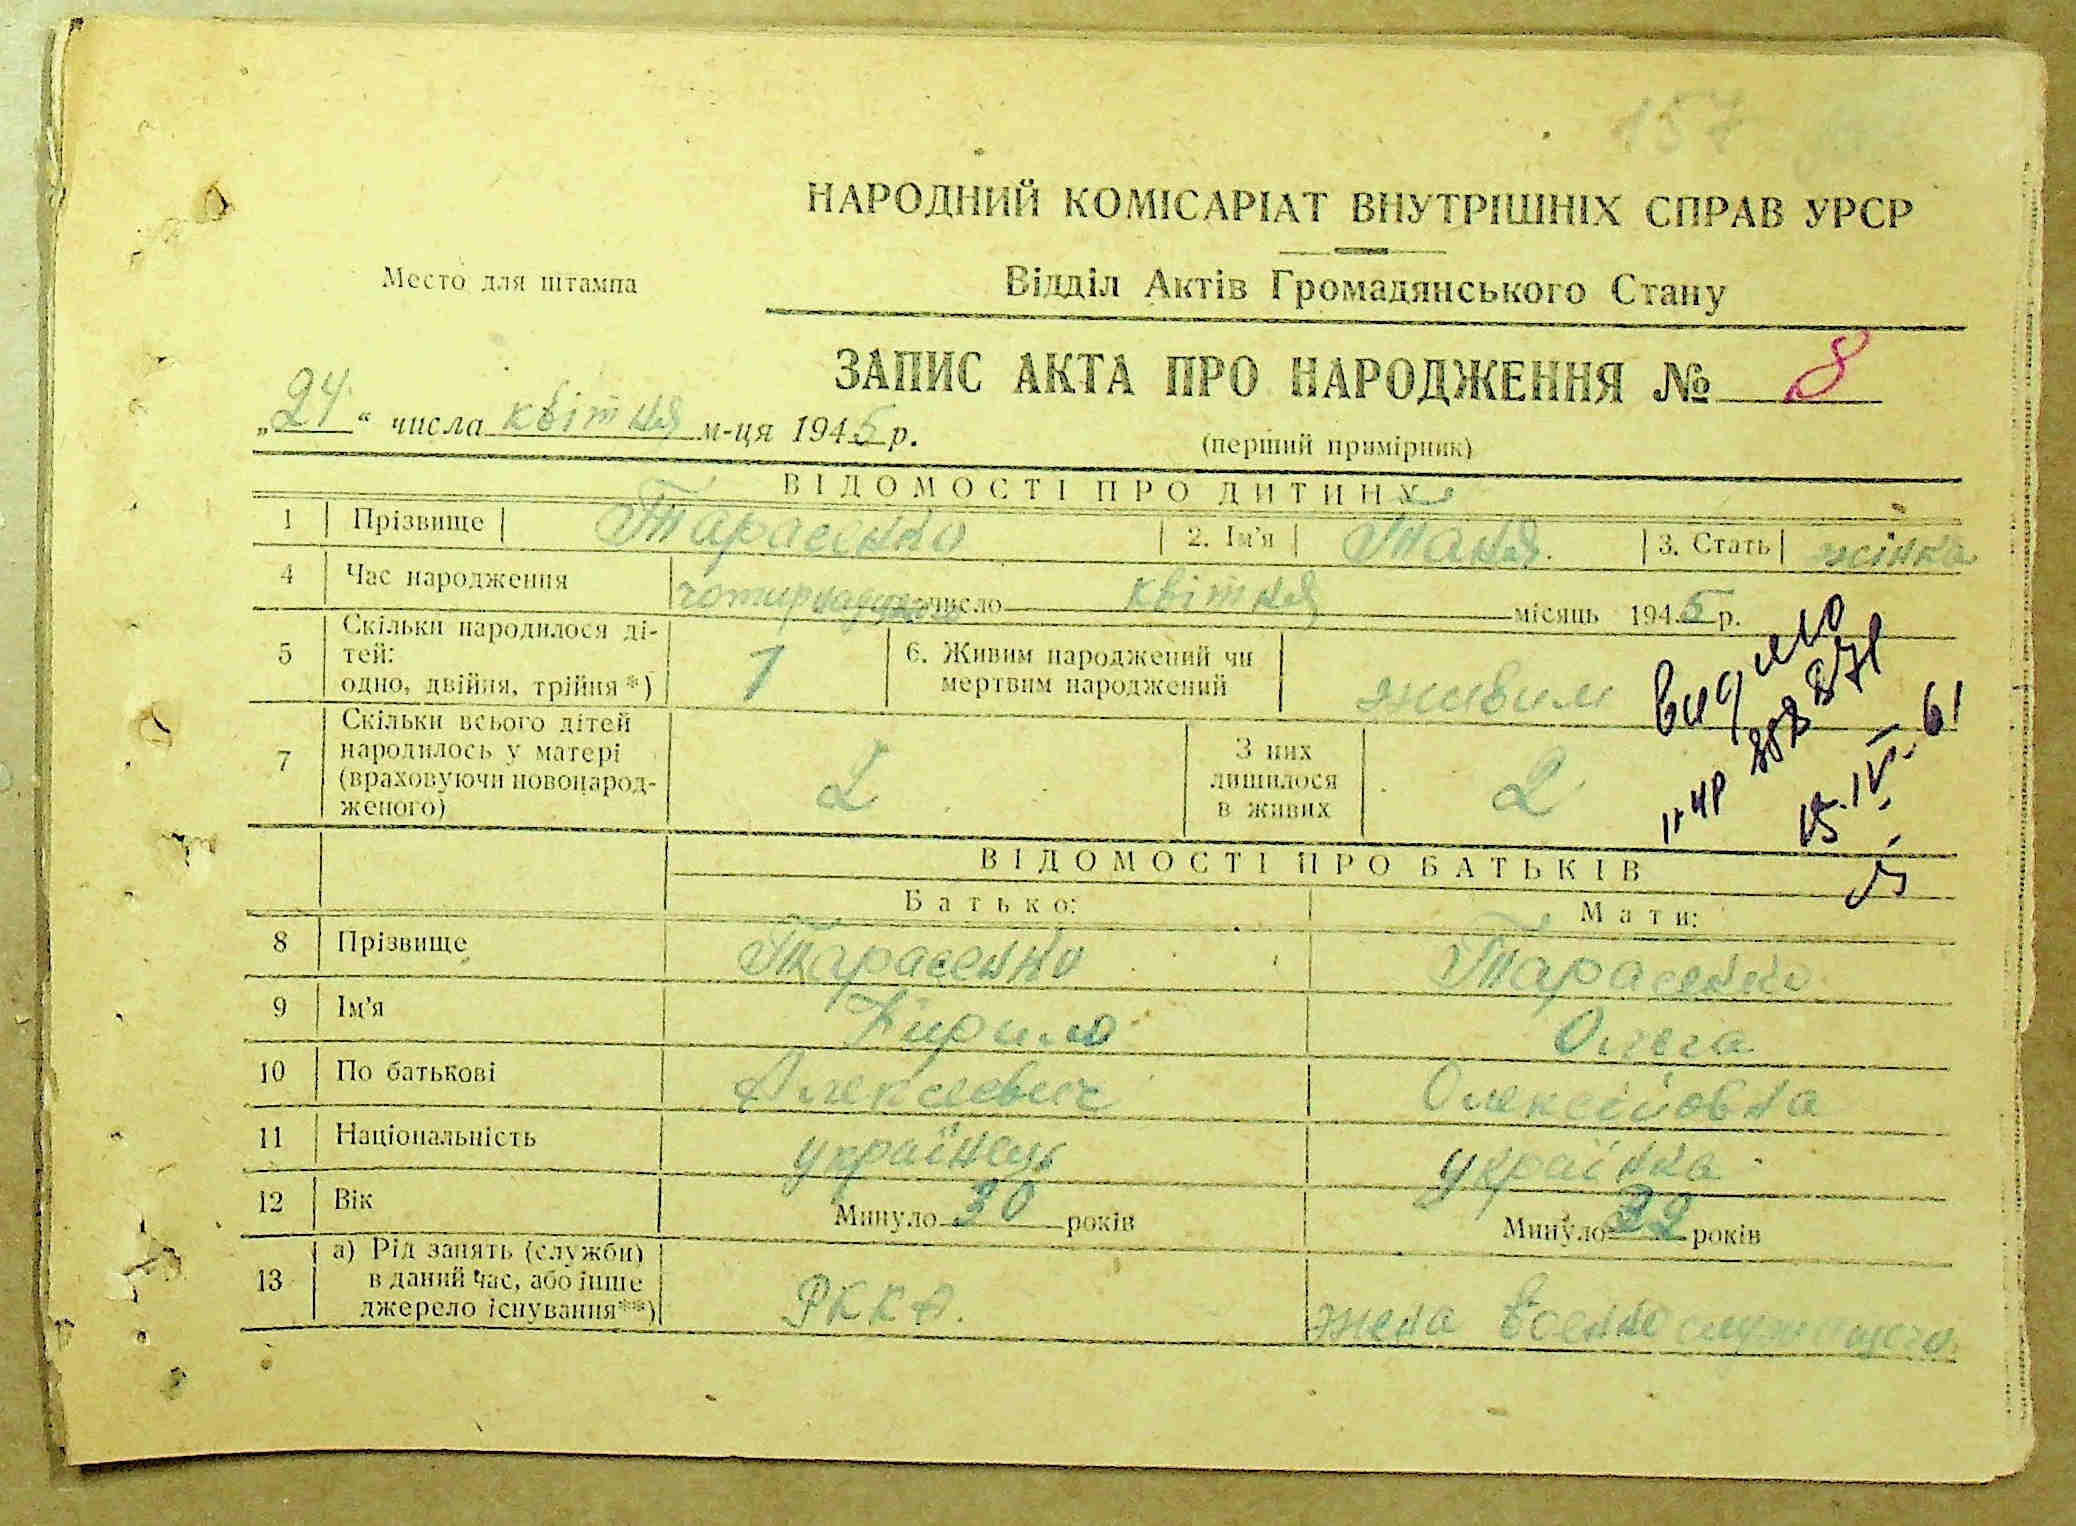 157
НАРОДНИЙ КОМІСАРІАТ ВНУТРІШНІХ СПРАВ УРСР
Место для штампа
Відділ Актів Громадянського Стану
ЗАПИС АКТА ПРО НАРОДЖЕННЯ № 8
„24“ числа квітня м-ця 1945 р.
(перший примірник)
ВІДОМОСТІ ПРО ДИТИНУ
1 Прізвище Тарасенко 2. Ім'я Таня. 3. Стать жінка
4 Час народження число квітня місяць 1945 р.
5 Скільки народилося ді-
тей:
одно, двійня, трійня *) 1 6. Живим народжений чи
мертвим народжений живим
видано
15.IV.61
7 Скільки всього дітей
народилось у матері
(враховуючи новонарод-
женого) 2 З них
лишилося
в живих 2
ВІДОМОСТІ ПРО БАТЬКІВ
Батько: Мати:
8 Прізвище Тарасенко Тарасенко
9 Ім'я Кирило Ольга
10 По батькові Алексеевич Олексіївна
11 Національність українець українка
12 Вік Минуло 30 років Минуло 32 років
13 а) Рід занять (служби)
в даний час, або інше
джерело існування**) РККА. жена военнослужащего.